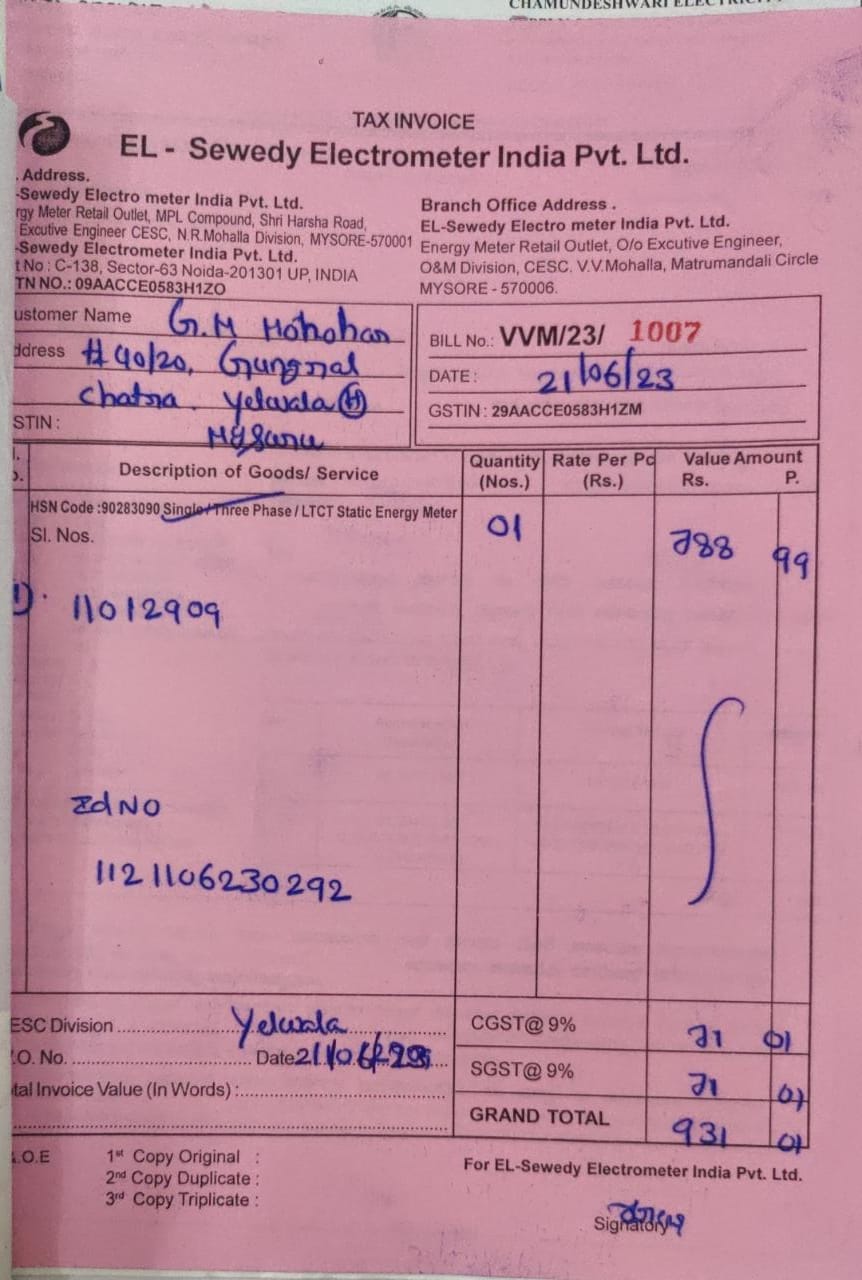 CHAMUNDESHWARI ELECTRICITY
TAX INVOICE
EL - Sewedy Electrometer India Pvt. Ltd.
. Address.
-Sewedy Electro meter India Pvt. Ltd.
rgy Meter Retail Outlet, MPL Compound, Shri Harsha Road,
Excutive Engineer CESC, N.R.Mohalla Division, MYSORE-570001
-Sewedy Electrometer India Pvt. Ltd.
t No : C-138, Sector-63 Noida-201301 UP, INDIA
TN NO.: 09AACCE0583H1ZO
Branch Office Address .
EL-Sewedy Electro meter India Pvt. Ltd.
Energy Meter Retail Outlet, O/o Excutive Engineer,
O&M Division, CESC. V.V.Mohalla, Matrumandali Circle
MYSORE - 570006.
ustomer Name G.M Mohohan
ddress #40/20, Gungral
Chatra. Yelwala (H)
STIN : Mysuru
BILL No.: VVM/23/ 1007
DATE : 21/06/23
GSTIN : 29AACCE0583H1ZM
Description of Goods/ Service
Quantity (Nos.)
Rate Per Pc (Rs.)
Value Amount
Rs. P.
HSN Code :90283090 Single / Three Phase / LTCT Static Energy Meter
Sl. Nos.
01
788 99
1). 11012909
NO
1121106230292
ESC Division Yelwala
.O. No. Date 21/06/23
tal Invoice Value (In Words) :
CGST@ 9% 71 01
SGST@ 9% 71 01
GRAND TOTAL 931 01
.O.E
1st Copy Original :
2nd Copy Duplicate :
3rd Copy Triplicate :
For EL-Sewedy Electrometer India Pvt. Ltd.
Signatory